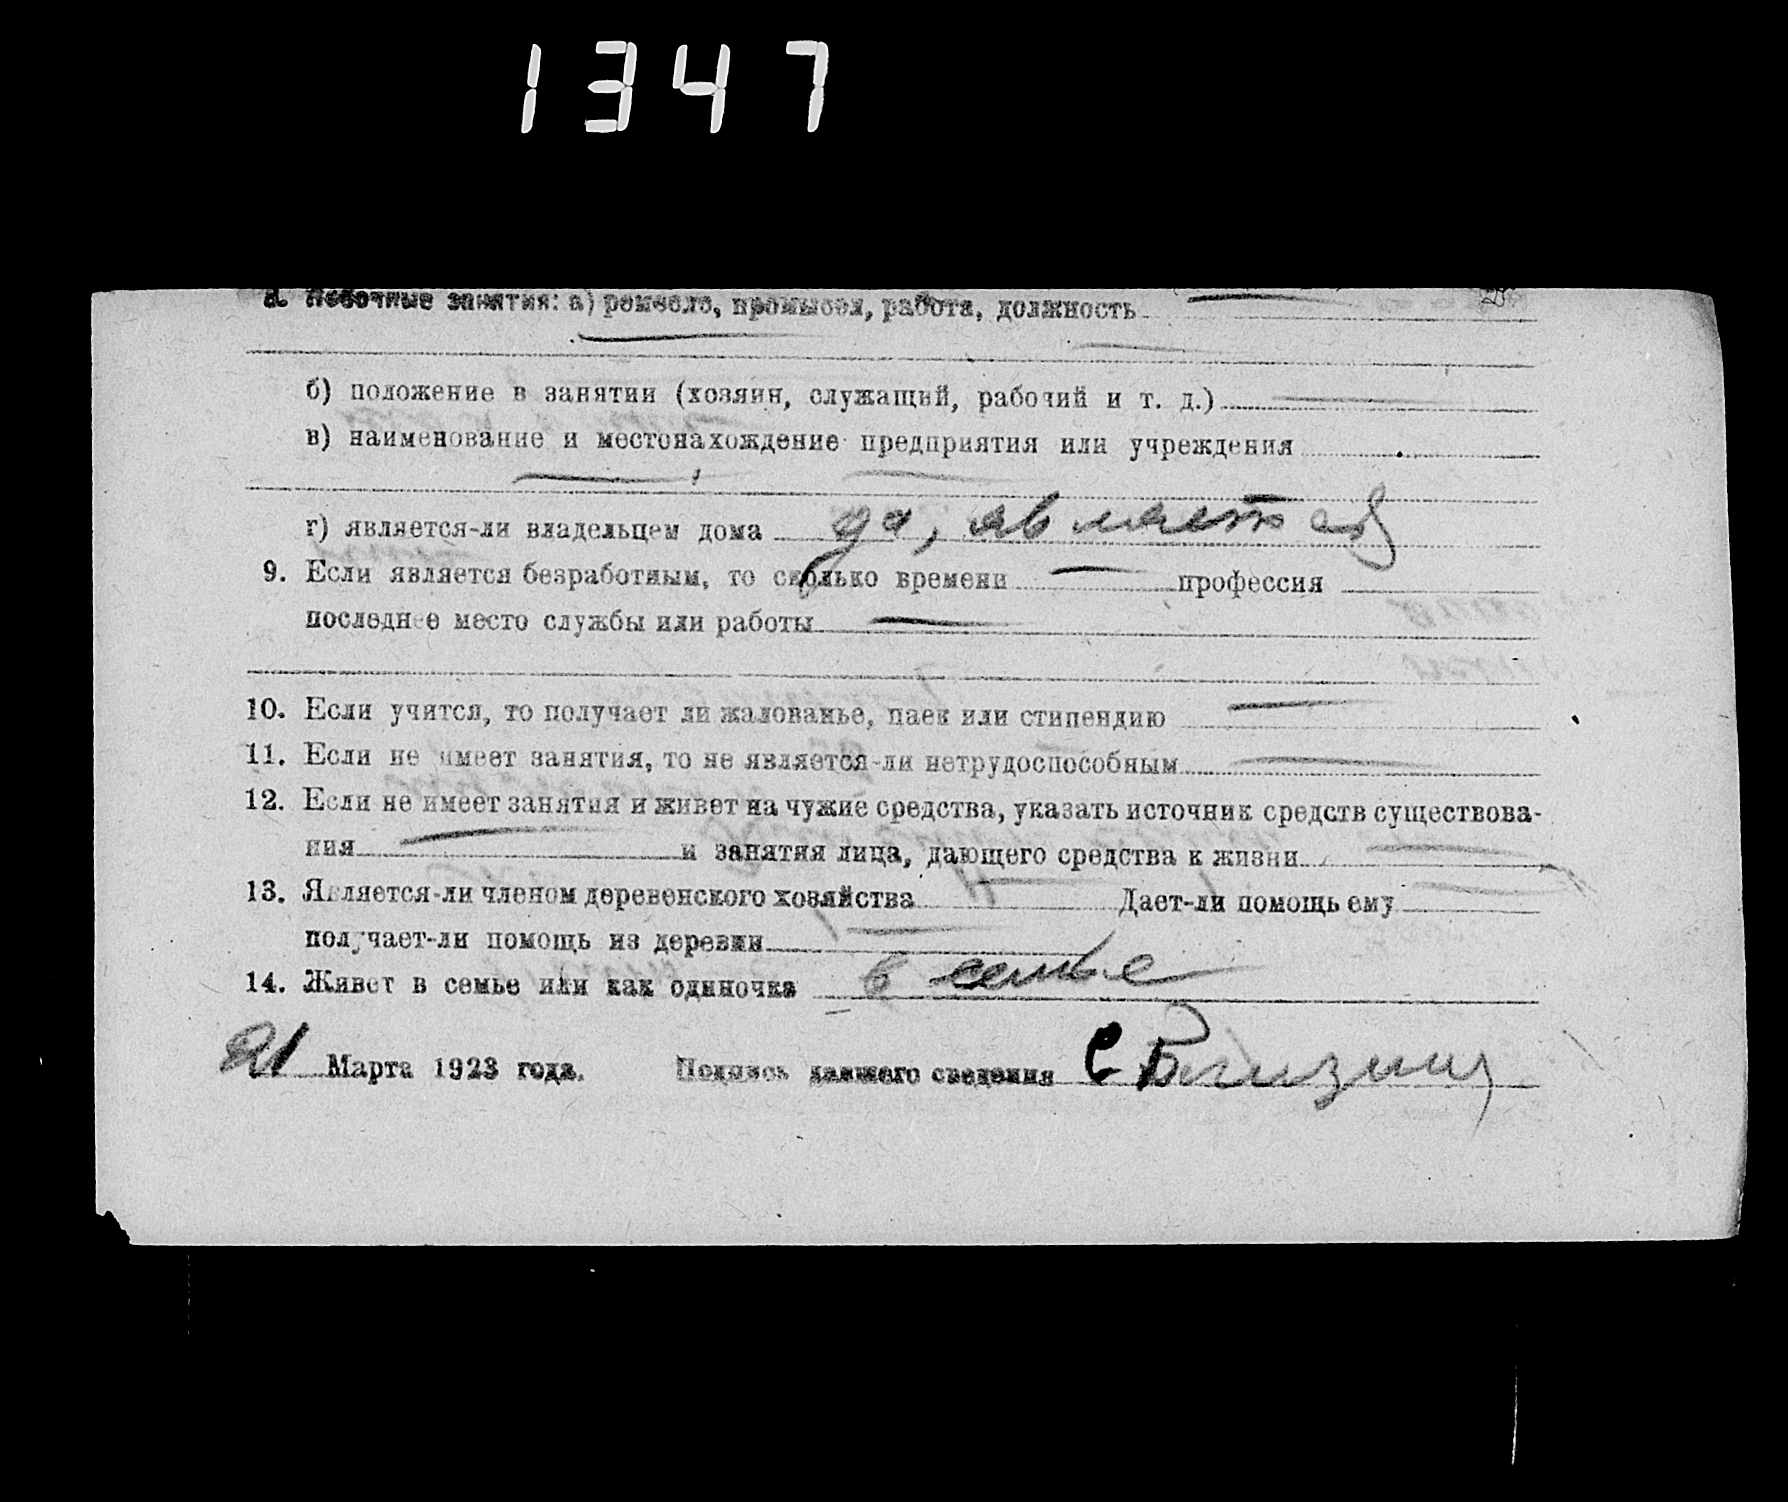 1347
8. Побочные занятия: а) ремесло, промысел, работа, должность
б) положение в занятии (хозяин, служащий, рабочий и т. д.)
в) наименование и местонахождение предприятия или учреждения
г) является-ли владельцем дома да, является
9. Если является безработным, то сколько времени профессия
последнее место службы или работы
10. Если учится, то получает ли жалованье, паек или стипендию
11. Если не имеет занятия, то не является-ли нетрудоспособным
12. Если не имеет занятия и живет на чужие средства, указать источник средств существова-
ния и занятия лица, дающего средства к жизни
13. Является-ли членом деревенского хозяйства Дает-ли помощь ему
получает-ли помощь из деревни
14. Живет в семье или как одиночка в семье
21 Марта 1923 года. Подпись давшего сведения С